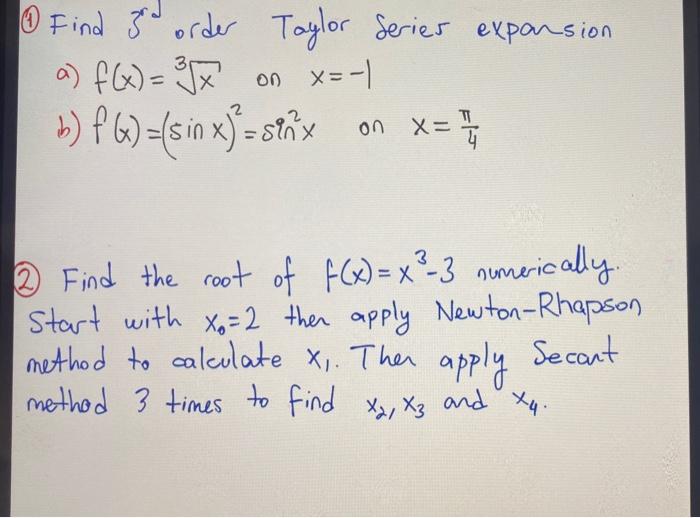 ① Find 3rd order Taylor Series expansion
a) f(x) = ∛x on x = -1
b) f(x) = (sin x)² = sin²x on x = π/4
② Find the root of f(x) = x³-3 numerically.
Start with x₀=2 then apply Newton-Rhapson
method to calculate x₁. Then apply Secant
method 3 times to find x₂, x₃ and x₄.